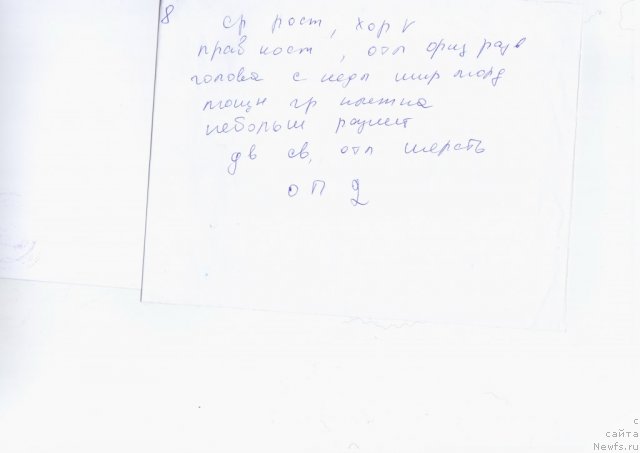 8 ср рост, хор V
прав кост, отл физ разв
голова с недо шир морд
мощн гр клетка
небольш размет
дв св, отл шерсть
ОП 2
с
сайта
Newfs.ru